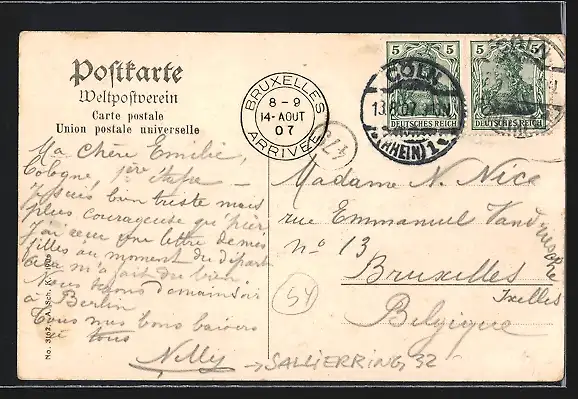 Postkarte
Weltpostverein
Carte postale
Union postale universelle
Ma Chère Emilie,
Cologne 1ère Etape —
Je suis bien triste mais
plus courageuse qu'hier
J'ai reçu une lettre de mes
filles au moment du départ
cela m'a fait du bien
Nous serons demain soir
à Berlin
Tous mes bons baisers
à tous
Nelly
No. 3162
BRUXELLES
8 – 9
14 – AOUT
07
ARRIVÉE
473
5 5
5 5
DEUTSCHES REICH
DEUTSCHES REICH
CÖLN
13.8.07
(RHEIN) 1
CÖLN
Madame N. Nice
rue Emmanuel Vand
n° 13
Bruxelles
Ixelles
Belgique
54
→ SALLIERRING 32